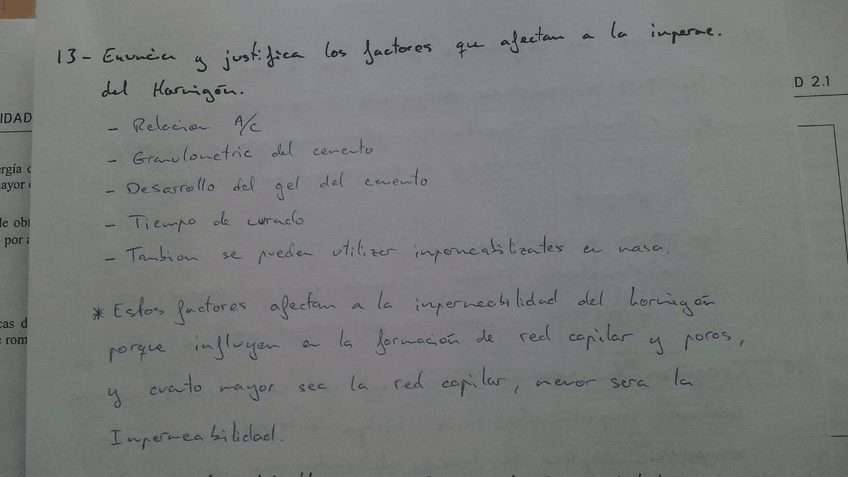 13- Enuncia y justifica los factores que afectan a la imperme.
del Hormigón.
- Relacion A/c
- Granulometric del cemento
- Desarrollo del gel del cemento
- Tiempo de curado
- Tambien se pueden utilizar impermeabilizates en masa.
* Estos factores afectan a la impermeabilidad del hormigón
porque influyen en la formación de red capilar y poros,
y cuato mayor sea la red capilar, menor sera la
Impermeabilidad.
IDAD
D 2.1
ergía
ayor
de
por
cas d
rom